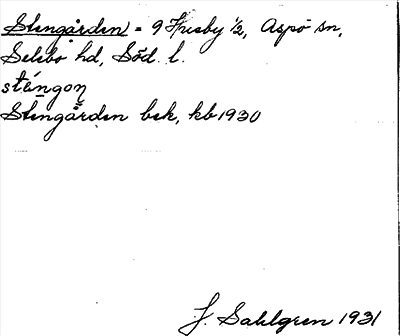 Stengården = 9 Husby ½, Aspö sn,
Selebo hd, Söd. l.
sténgon
Stengården bek, kb 1930
J. Sahlgren 1931